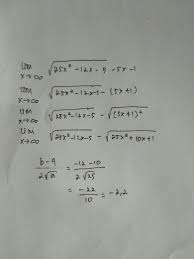 lim x→∞ √(25x² - 12x - 5) - 5x - 1
lim x→∞ √(25x² - 12x - 5) - (5x + 1)
lim x→∞ √(25x² - 12x - 5) - √((5x + 1)²)
lim x→∞ √(25x² - 12x - 5) - √(25x² + 10x + 1)
(b - q)/(2√a) = (-12 - 10)/(2√25)
= -22/10 = -2,2